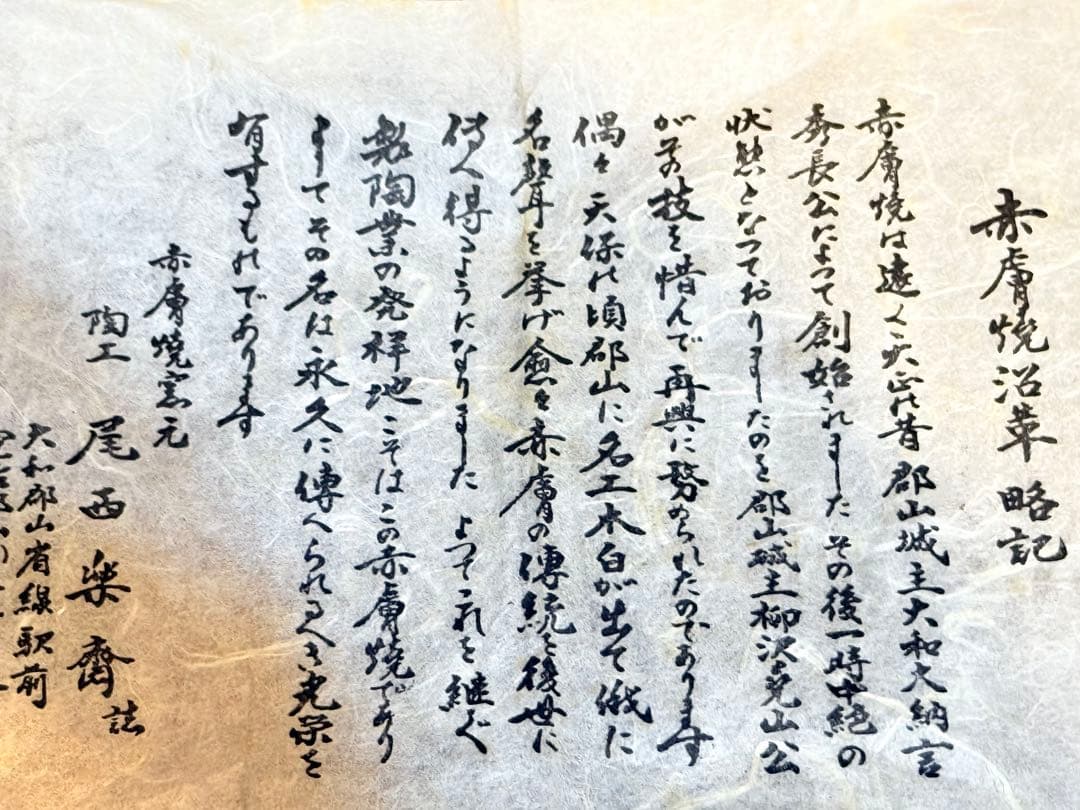 赤膚焼沿革略記
赤膚焼は遠く天正の昔郡山城主大和大納言
秀長公によつて創始されましたその後一時中絶の
状態となつておりましたのを郡山城主柳沢尭山公
がその技を惜んで再興に努められたのであります
偶々天保の頃郡山に名工木白が出て俄に
名聲を挙げ愈々赤膚の傳統を後世に
傳へ得るようになりましたよつてこれを継ぐ
製陶業の発祥地こそはこの赤膚焼であり
ましてその名は永久に傳へられるべき光栄を
有するものであります
赤膚焼窯元
陶工 尾西楽齋 誌
大和郡山省線駅前